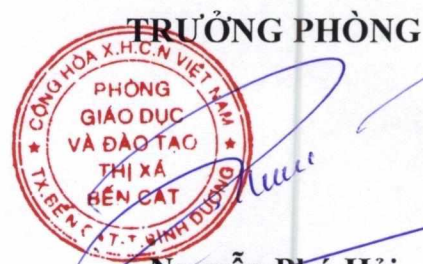 TRƯỞNG PHÒNG
CỘNG HÒA X.H.C.N VIỆT NAM
PHÒNG
GIÁO DỤC
VÀ ĐÀO TẠO
THỊ XÃ
BẾN CÁT
TX.BẾN CÁT-T.BÌNH DƯƠNG
Nguyễn Phú Hải